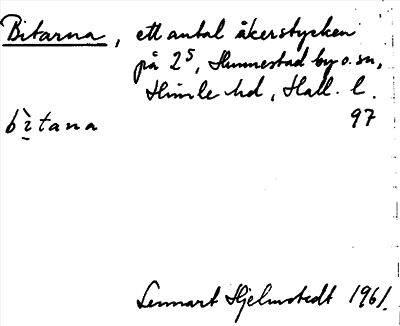 Bitarna, ett antal åkerstycken
på 2⁵, Hunnestad by o. sn,
Himle hd, Hall. l.
bì̱tana 97
Lennart Hjelmstedt 1961.